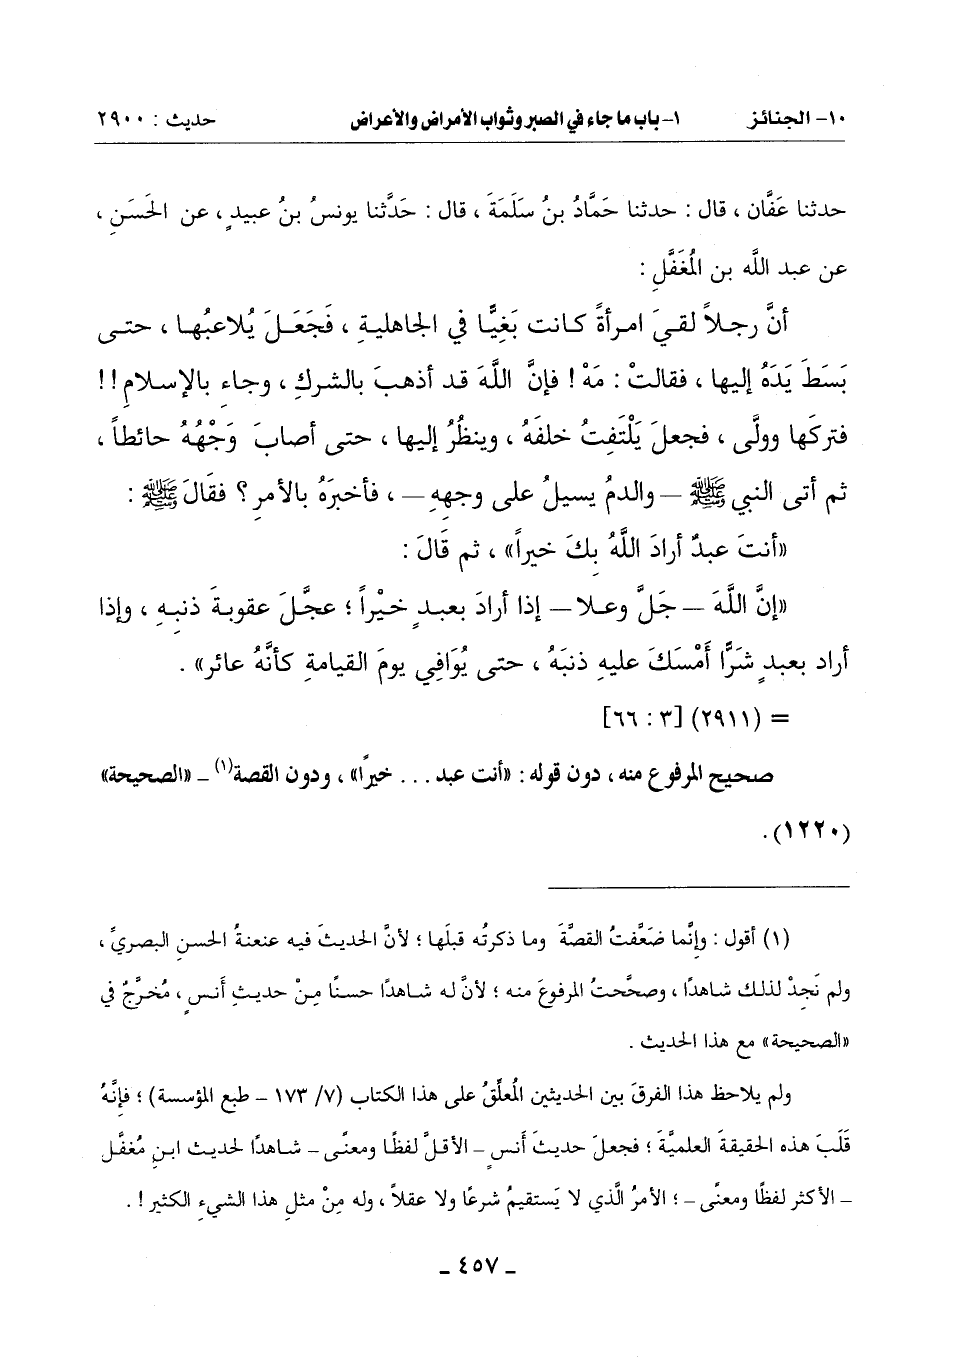 ١٠- الجنائز ١- باب ما جاء في الصبر وثواب الأمراض والأعراض حديث : ٢٩٠٠
حدثنا عَفَّان ، قال : حدثنا حَمَّادُ بنُ سَلَمَةَ ، قال : حَدَّثنا يونسُ بنُ عبيدٍ ، عن الحَسَنِ ،
عن عبد اللَّه بن المُغَفَّلِ :
أنَّ رجلاً لقيَ امرأةً كانت بَغِيًّا في الجاهليةِ ، فَجَعَلَ يُلاعبُها ، حتى
بَسَطَ يَدَهُ إليها ، فقالتْ : مَهْ ! فإنَّ اللَّهَ قد أذهبَ بالشركِ ، وجاءِ بالإسلامِ !!
فتركَها وولَّى ، فجعلَ يَلْتَفِتُ خلفَهُ ، وينظُرُ إليها ، حتى أصابَ وَجْهُهُ حائطاً ،
ثم أتى النبي ﷺ — والدمُ يسيلُ على وجههِ — ، فأخبرَهُ بالأمرِ ؟ فقَالَ ﷺ :
«أنتَ عبدٌ أرادَ اللَّهُ بِكَ خيراً» ، ثم قَالَ :
«إنَّ اللَّهَ — جَلَّ وعلا — إذا أرادَ بعبدٍ خيْراً ؛ عجَّلَ عقوبةَ ذنبِهِ ، وإذا
أراد بعبدٍ شَرًّا أَمْسَكَ عليهِ ذنبَهُ ، حتى يُوَافِي يومَ القيامةِ كأنَّهُ عائر» .
= (٢٩١١) [٣ : ٦٦]
صحيح المرفوع منه ، دون قوله : «أنت عبد . . . خيرًا» ، ودون القصة(١) ـ «الصحيحة»
(١٢٢٠) .
(١) أقول : وإنَّما ضَعَّفتُ القصَّةَ وما ذكرتُه قبلَها ؛ لأنَّ الحديثَ فيه عنعنةُ الحسنِ البصريِّ ،
ولم نَجِدْ لذلك شاهدًا ، وصحَّحتُ المرفوعَ منه ؛ لأنَّ له شاهدًا حسنًا مِنْ حديثِ أنسٍ ، مُخرَّجٌ في
«الصحيحة» مع هذا الحديث .
ولم يلاحظ هذا الفرقَ بين الحديثين المُعلِّقُ على هذا الكتاب (٧/ ١٧٣ ـ طبع المؤسسة) ؛ فإنَّهُ
قَلَبَ هذه الحقيقةَ العلميَّةَ ؛ فجعلَ حديثَ أنسٍ ـ الأقلَّ لفظًا ومعنًى ـ شاهدًا لحديث ابنِ مُغفَّل
ـ الأكثر لفظًا ومعنًى ـ ؛ الأمرُ الَّذي لا يَستقيمُ شرعًا ولا عقلاً ، وله مِنْ مثلِ هذا الشيءِ الكثير ! .
ـ ٤٥٧ ـ